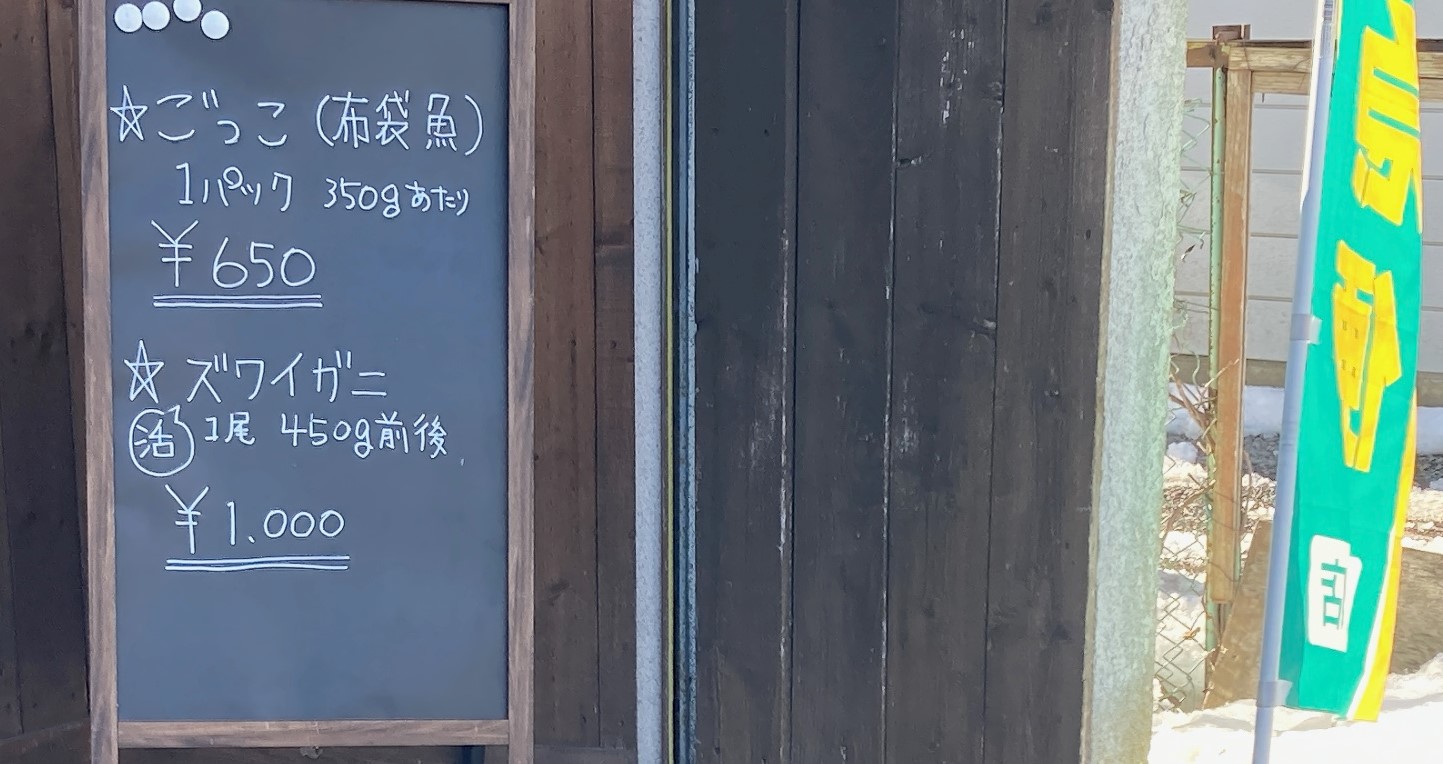 ☆ごっこ(布袋魚)
1パック 350gあたり
¥650
☆ズワイガニ
活 1尾 450g前後
¥1.000